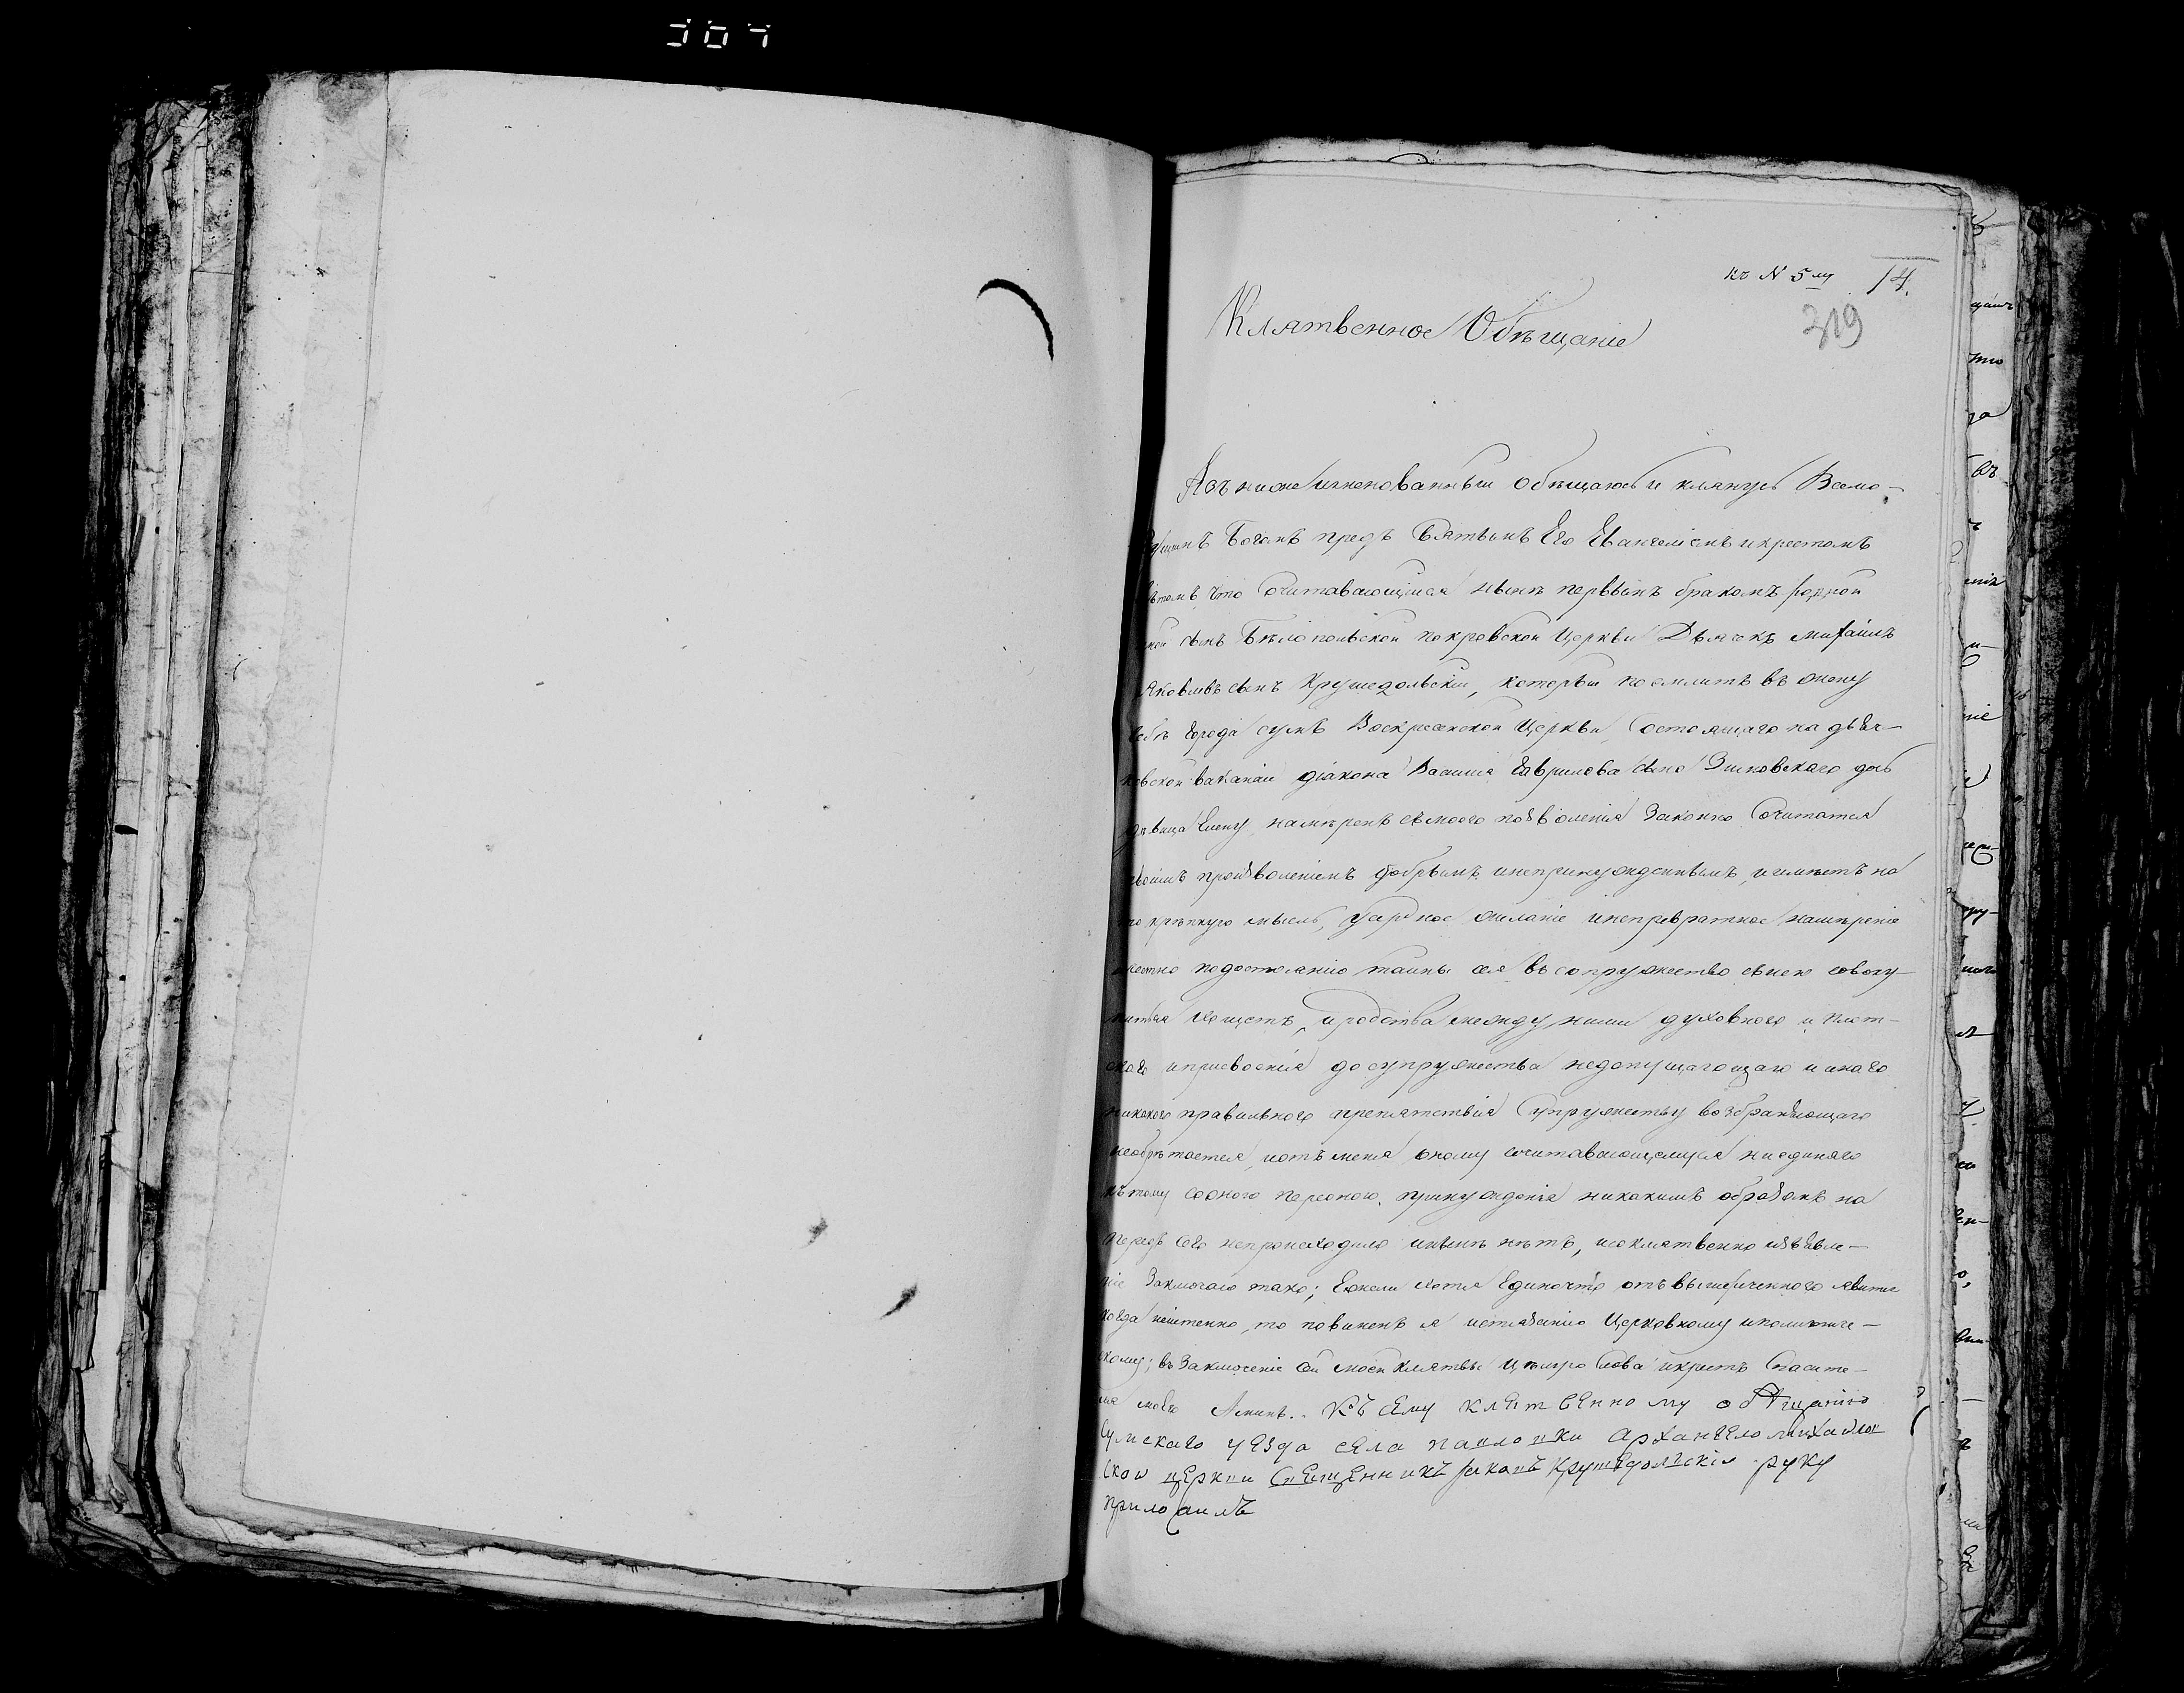 къ N 5му 14.
319
Клятвенное Обѣщаніе
Азъ нижеименованный обѣщаюсь и клянусь Всемо-
Богомъ предъ Святымъ Его Евангеліемъ и крестомъ
въ томъ что Сочитавающійся нынѣ первымъ бракомъ родной
мой сынъ Бѣлопольской покровской Церкви Дьячекъ михаилъ
Яковлевъ сынъ Крушедольскій, который поемлитъ въ жену
себѣ города сумъ Воскресенской Церкви, Состоящаго на дьяч-
ковской ваканціи діакона Василія Гаврилова сына дочь
дѣвица Елену, намѣренъ съ моего позволенія Законно Сочитатся
своимъ произволеніемъ добрымъ и непринужденнымъ, и имѣетъ на
то крѣпкую мысль, усердное желаніе и непревратное намѣреніе
честно по достоянію тайны сея въ сопружество съ нею совоку-
питься хощетъ, и родства между ними духовного и плот-
скаго и присвоенія до супружества недопущающаго и инаго
никакого правильного препятствія Супружеству возбраняющаго
необрѣтается, и отъ меня оному сочитавающемуся ни единаго
къ тому принужденія никакимъ образомъ на
передъ сего непроисходило и нынѣ нѣтъ, и сіе клятвенно
Заключаю тако; Ежели хотя Едино что отъ вышереченного явится
когда неистенно, то повиненъ я истязанію Церковному и политиче-
скому; въ Заключеніе сей моей клятвы цѣлую слова и крестъ Спасите-
ля моего Аминь. Къ сему клятвенному обѣщанію
Сумскаго уезда села павловки архангеломихайлов
ской церкви священникъ Іаковъ Крушедольскій руку
приложилъ